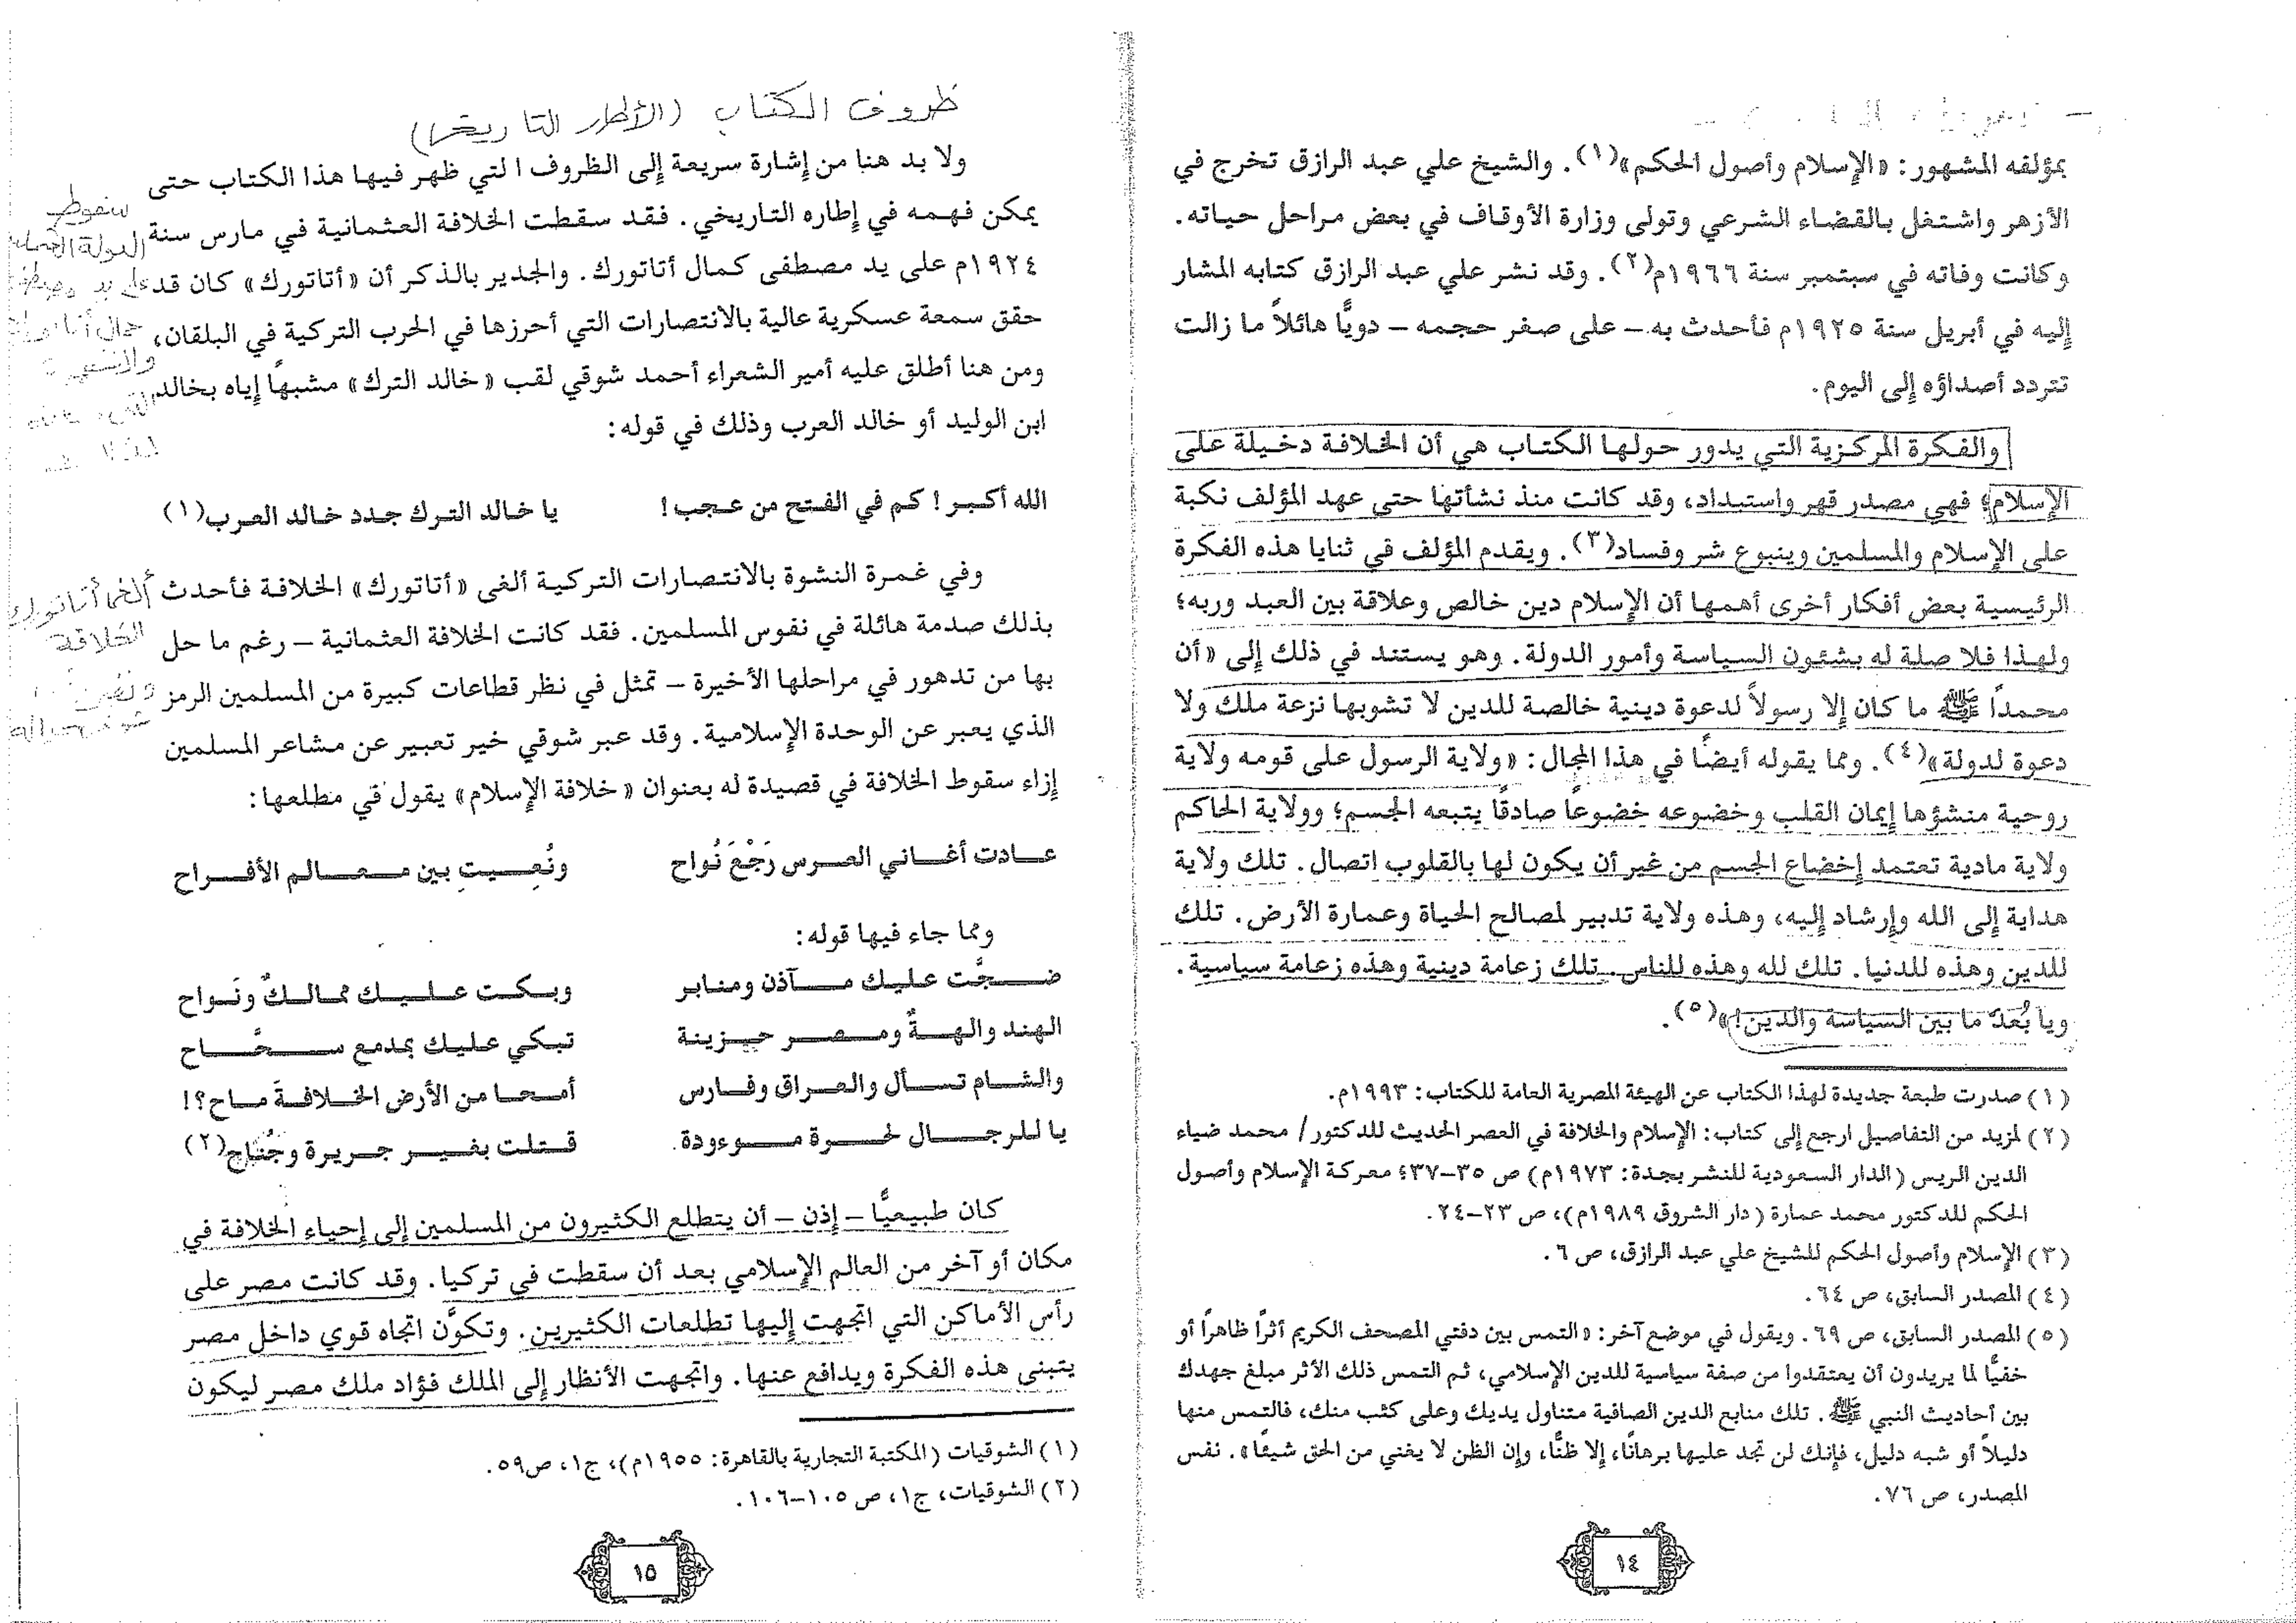 بمؤلفه المشهور: «الإسلام وأصول الحكم»(١). والشيخ علي عبد الرازق تخرج في
الأزهر واشتغل بالقضاء الشرعي وتولى وزارة الأوقاف في بعض مراحل حياته.
وكانت وفاته في سبتمبر سنة ١٩٦٦م(٢). وقد نشر علي عبد الرازق كتابه المشار
إليه في أبريل سنة ١٩٢٥م فأحدث به – على صغر حجمه – دويًّا هائلاً ما زالت
تتردد أصداؤه إلى اليوم.
والفكرة المركزية التي يدور حولها الكتاب هي أن الخلافة دخيلة على
الإسلام؛ فهي مصدر قهر واستبداد، وقد كانت منذ نشأتها حتى عهد المؤلف نكبة
على الإسلام والمسلمين وينبوع شر وفساد(٣). ويقدم المؤلف في ثنايا هذه الفكرة
الرئيسية بعض أفكار أخرى أهمها أن الإسلام دين خالص وعلاقة بين العبد وربه؛
ولهذا فلا صلة له بشئون السياسة وأمور الدولة. وهو يستند في ذلك إلى «أن
محمداً ﷺ ما كان إلا رسولاً لدعوة دينية خالصة للدين لا تشوبها نزعة ملك ولا
دعوة لدولة»(٤). ومما يقوله أيضًا في هذا المجال: «ولاية الرسول على قومه ولاية
روحية منشؤها إيمان القلب وخضوعه خضوعًا صادقًا يتبعه الجسم؛ وولاية الحاكم
ولاية مادية تعتمد إخضاع الجسم من غير أن يكون لها بالقلوب اتصال. تلك ولاية
هداية إلى الله وإرشاد إليه، وهذه ولاية تدبير لمصالح الحياة وعمارة الأرض. تلك
للدين وهذه للدنيا. تلك لله وهذه للناس. تلك زعامة دينية وهذه زعامة سياسية.
ويا بُعدَ ما بين السياسة والدين!»(٥).
(١) صدرت طبعة جديدة لهذا الكتاب عن الهيئة المصرية العامة للكتاب: ١٩٩٣م.
(٢) لمزيد من التفاصيل ارجع إلى كتاب: الإسلام والخلافة في العصر الحديث للدكتور/ محمد ضياء
الدين الريس (الدار السعودية للنشر بجدة: ١٩٧٣م) ص ٣٥–٣٧؛ معركة الإسلام وأصول
الحكم للدكتور محمد عمارة (دار الشروق ١٩٨٩م)، ص ٢٣–٢٤.
(٣) الإسلام وأصول الحكم للشيخ علي عبد الرازق، ص ٦.
(٤) المصدر السابق، ص ٦٤.
(٥) المصدر السابق، ص ٦٩. ويقول في موضع آخر: «التمس بين دفتي المصحف الكريم أثراً ظاهراً أو
خفيًّا لما يريدون أن يعتقدوا من صفة سياسية للدين الإسلامي، ثم التمس ذلك الأثر مبلغ جهدك
بين أحاديث النبي ﷺ. تلك منابع الدين الصافية متناول يديك وعلى كثب منك، فالتمس منها
دليلاً أو شبه دليل، فإنك لن تجد عليها برهانًا، إلا ظنًّا، وإن الظن لا يغني من الحق شيئًا». نفس
المصدر، ص ٧٦.
١٤
ظروف الكتاب (الأطار التاريخي)
ولا بد هنا من إشارة سريعة إلى الظروف التي ظهر فيها هذا الكتاب حتى
يمكن فهمه في إطاره التاريخي. فقد سقطت الخلافة العثمانية في مارس سنة
١٩٢٤م على يد مصطفى كمال أتاتورك. والجدير بالذكر أن «أتاتورك» كان قد
حقق سمعة عسكرية عالية بالانتصارات التي أحرزها في الحرب التركية في البلقان،
ومن هنا أطلق عليه أمير الشعراء أحمد شوقي لقب «خالد الترك» مشبهًا إياه بخالد
ابن الوليد أو خالد العرب وذلك في قوله:
الله أكبر! كم في الفتح من عجب! يا خالد الترك جدد خالد العرب(١)
وفي غمرة النشوة بالانتصارات التركية ألغى «أتاتورك» الخلافة فأحدث
بذلك صدمة هائلة في نفوس المسلمين. فقد كانت الخلافة العثمانية – رغم ما حل
بها من تدهور في مراحلها الأخيرة – تمثل في نظر قطاعات كبيرة من المسلمين الرمز
الذي يعبر عن الوحدة الإسلامية. وقد عبر شوقي خير تعبير عن مشاعر المسلمين
إزاء سقوط الخلافة في قصيدة له بعنوان «خلافة الإسلام» يقول في مطلعها:
عادت أغاني العرس رَجْعَ نُواح ونُعِيتِ بين معالم الأفراح
ومما جاء فيها قوله:
ضجَّت عليك مآذن ومنابر وبكت عليك ممالكٌ ونَواح
الهند والهةٌ ومصر حزينة تبكي عليك بمدمع سحَّاح
والشام تسأل والعراق وفارس أمحا من الأرض الخلافةَ ماح؟!
يا للرجال لحرة موءودة قتلت بغير جريرة وجُنَاح(٢)
كان طبيعيًّا – إذن – أن يتطلع الكثيرون من المسلمين إلى إحياء الخلافة في
مكان أو آخر من العالم الإسلامي بعد أن سقطت في تركيا. وقد كانت مصر على
رأس الأماكن التي اتجهت إليها تطلعات الكثيرين. وتكوَّن اتجاه قوي داخل مصر
يتبنى هذه الفكرة ويدافع عنها. واتجهت الأنظار إلى الملك فؤاد ملك مصر ليكون
(١) الشوقيات (المكتبة التجارية بالقاهرة: ١٩٥٥م)، ج١، ص٥٩.
(٢) الشوقيات، ج١، ص ١٠٥–١٠٦.
١٥
سقوط
الدولة
على يد
ألغى أتاتورك
الخلافة